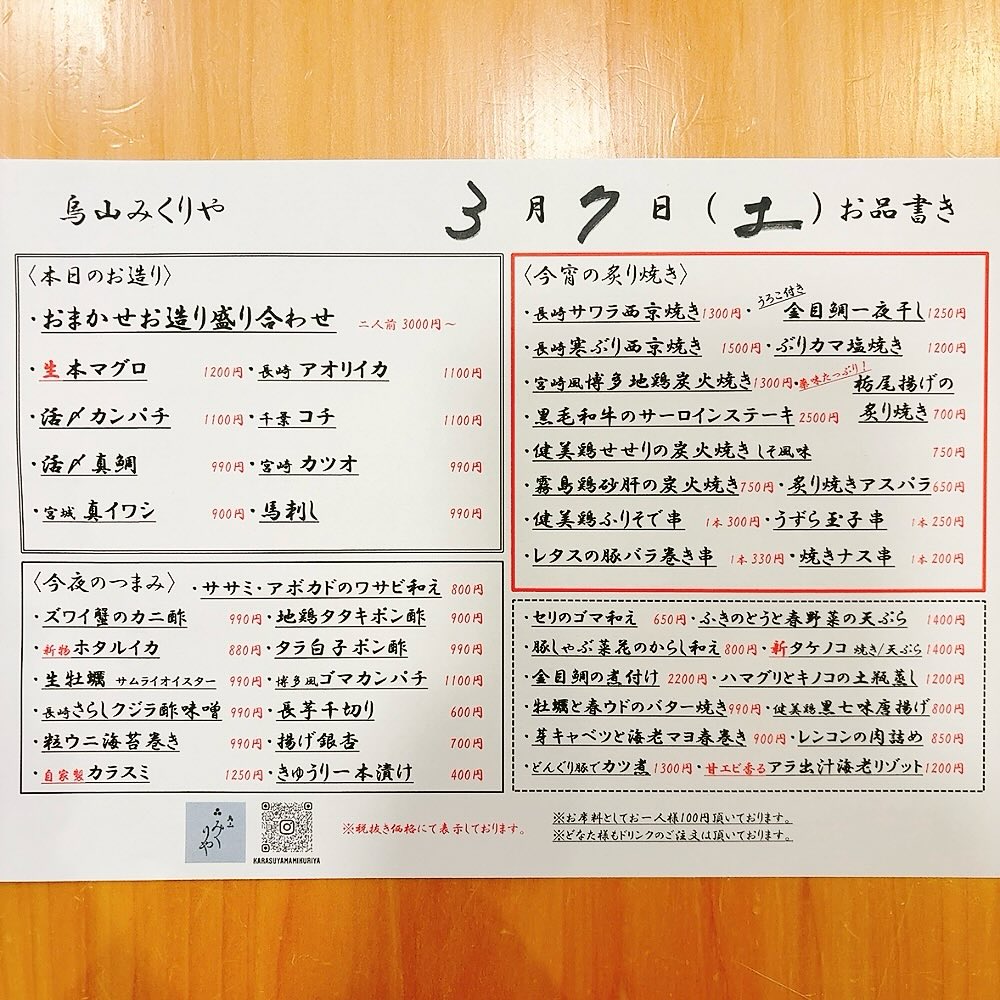 烏山みくりや 3月7日(土)お品書き
〈本日のお造り〉
・おまかせお造り盛り合わせ 二人前 3000円〜
・生本マグロ 1200円・長崎 アオリイカ 1100円
・活〆カンパチ 1100円・千葉 コチ 1100円
・活〆真鯛 990円・宮崎 カツオ 990円
・宮城 真イワシ 900円・馬刺し 990円
〈今夜のつまみ〉・ササミ・アボカドのワサビ和え 800円
・ズワイ蟹のカニ酢 990円・地鶏タタキポン酢 900円
・新物ホタルイカ 880円・タラ白子ポン酢 990円
・生牡蠣 サムライオイスター 990円・博多風ゴマカンパチ 1100円
・長崎さらしクジラ酢味噌 990円・長芋千切り 600円
・粒ウニ海苔巻き 990円・揚げ銀杏 700円
・自家製カラスミ 1250円・きゅうり一本漬け 400円
〈今宵の炙り焼き〉
・長崎サワラ西京焼き1300円・うろこ付き 金目鯛一夜干し1250円
・長崎寒ぶり西京焼き 1500円・ぶりカマ塩焼き 1200円
・宮崎風博多地鶏炭火焼き1300円・薬味たっぷり!栃尾揚げの
・黒毛和牛のサーロインステーキ2500円 炙り焼き700円
・健美鶏せせりの炭火焼きしそ風味 750円
・霧島鶏砂肝の炭火焼き750円・炙り焼きアスパラ650円
・健美鶏ふりそで串 1本300円・うずら玉子串 1本250円
・レタスの豚バラ巻き串 1本330円・焼きナス串 1本200円
・セリのゴマ和え 650円・ふきのとうと春野菜の天ぷら 1400円
・豚しゃぶ菜花のからし和え800円・新タケノコ 焼き/天ぷら1400円
・金目鯛の煮付け 2200円・ハマグリとキノコの土瓶蒸し 1200円
・牡蠣と春ウドのバター焼き990円・健美鶏黒七味唐揚げ800円
・芽キャベツと海老マヨ春巻き 900円・レンコンの肉詰め 850円
・どんぐり豚でカツ煮 1300円・甘エビ香るアラ出汁海老リゾット1200円
みくりや
KARASUYAMAMIKURIYA
※税抜き価格にて表示しております。
※お席料としてお一人様100円頂いております。
※どなた様もドリンクのご注文は頂いております。